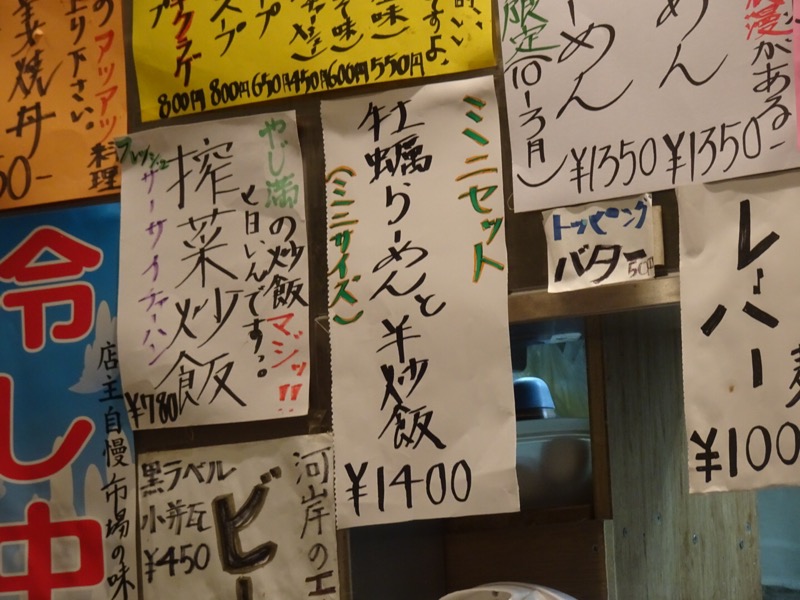 のアツアツ料理
上り下さい。
焼丼
クラゲ
800円
800円
650円
450円
600円
550円
スープ
すよ。
限定(10〜3月)
ーめん
¥1350
めん
¥1350
がある
ミニセット
牡蠣らーめんと半炒飯
(ミニサイズ)
¥1400
やじ満の炒飯マジッ!!
と旨いんですっ。
搾菜炒飯
フレッシュ
サーサイチャーハン
¥780
トッピング
バター
50円
レバー
¥100
冷し中
店主自慢市場の味
河岸の
ビー
黒ラベル
小并瓦
¥450